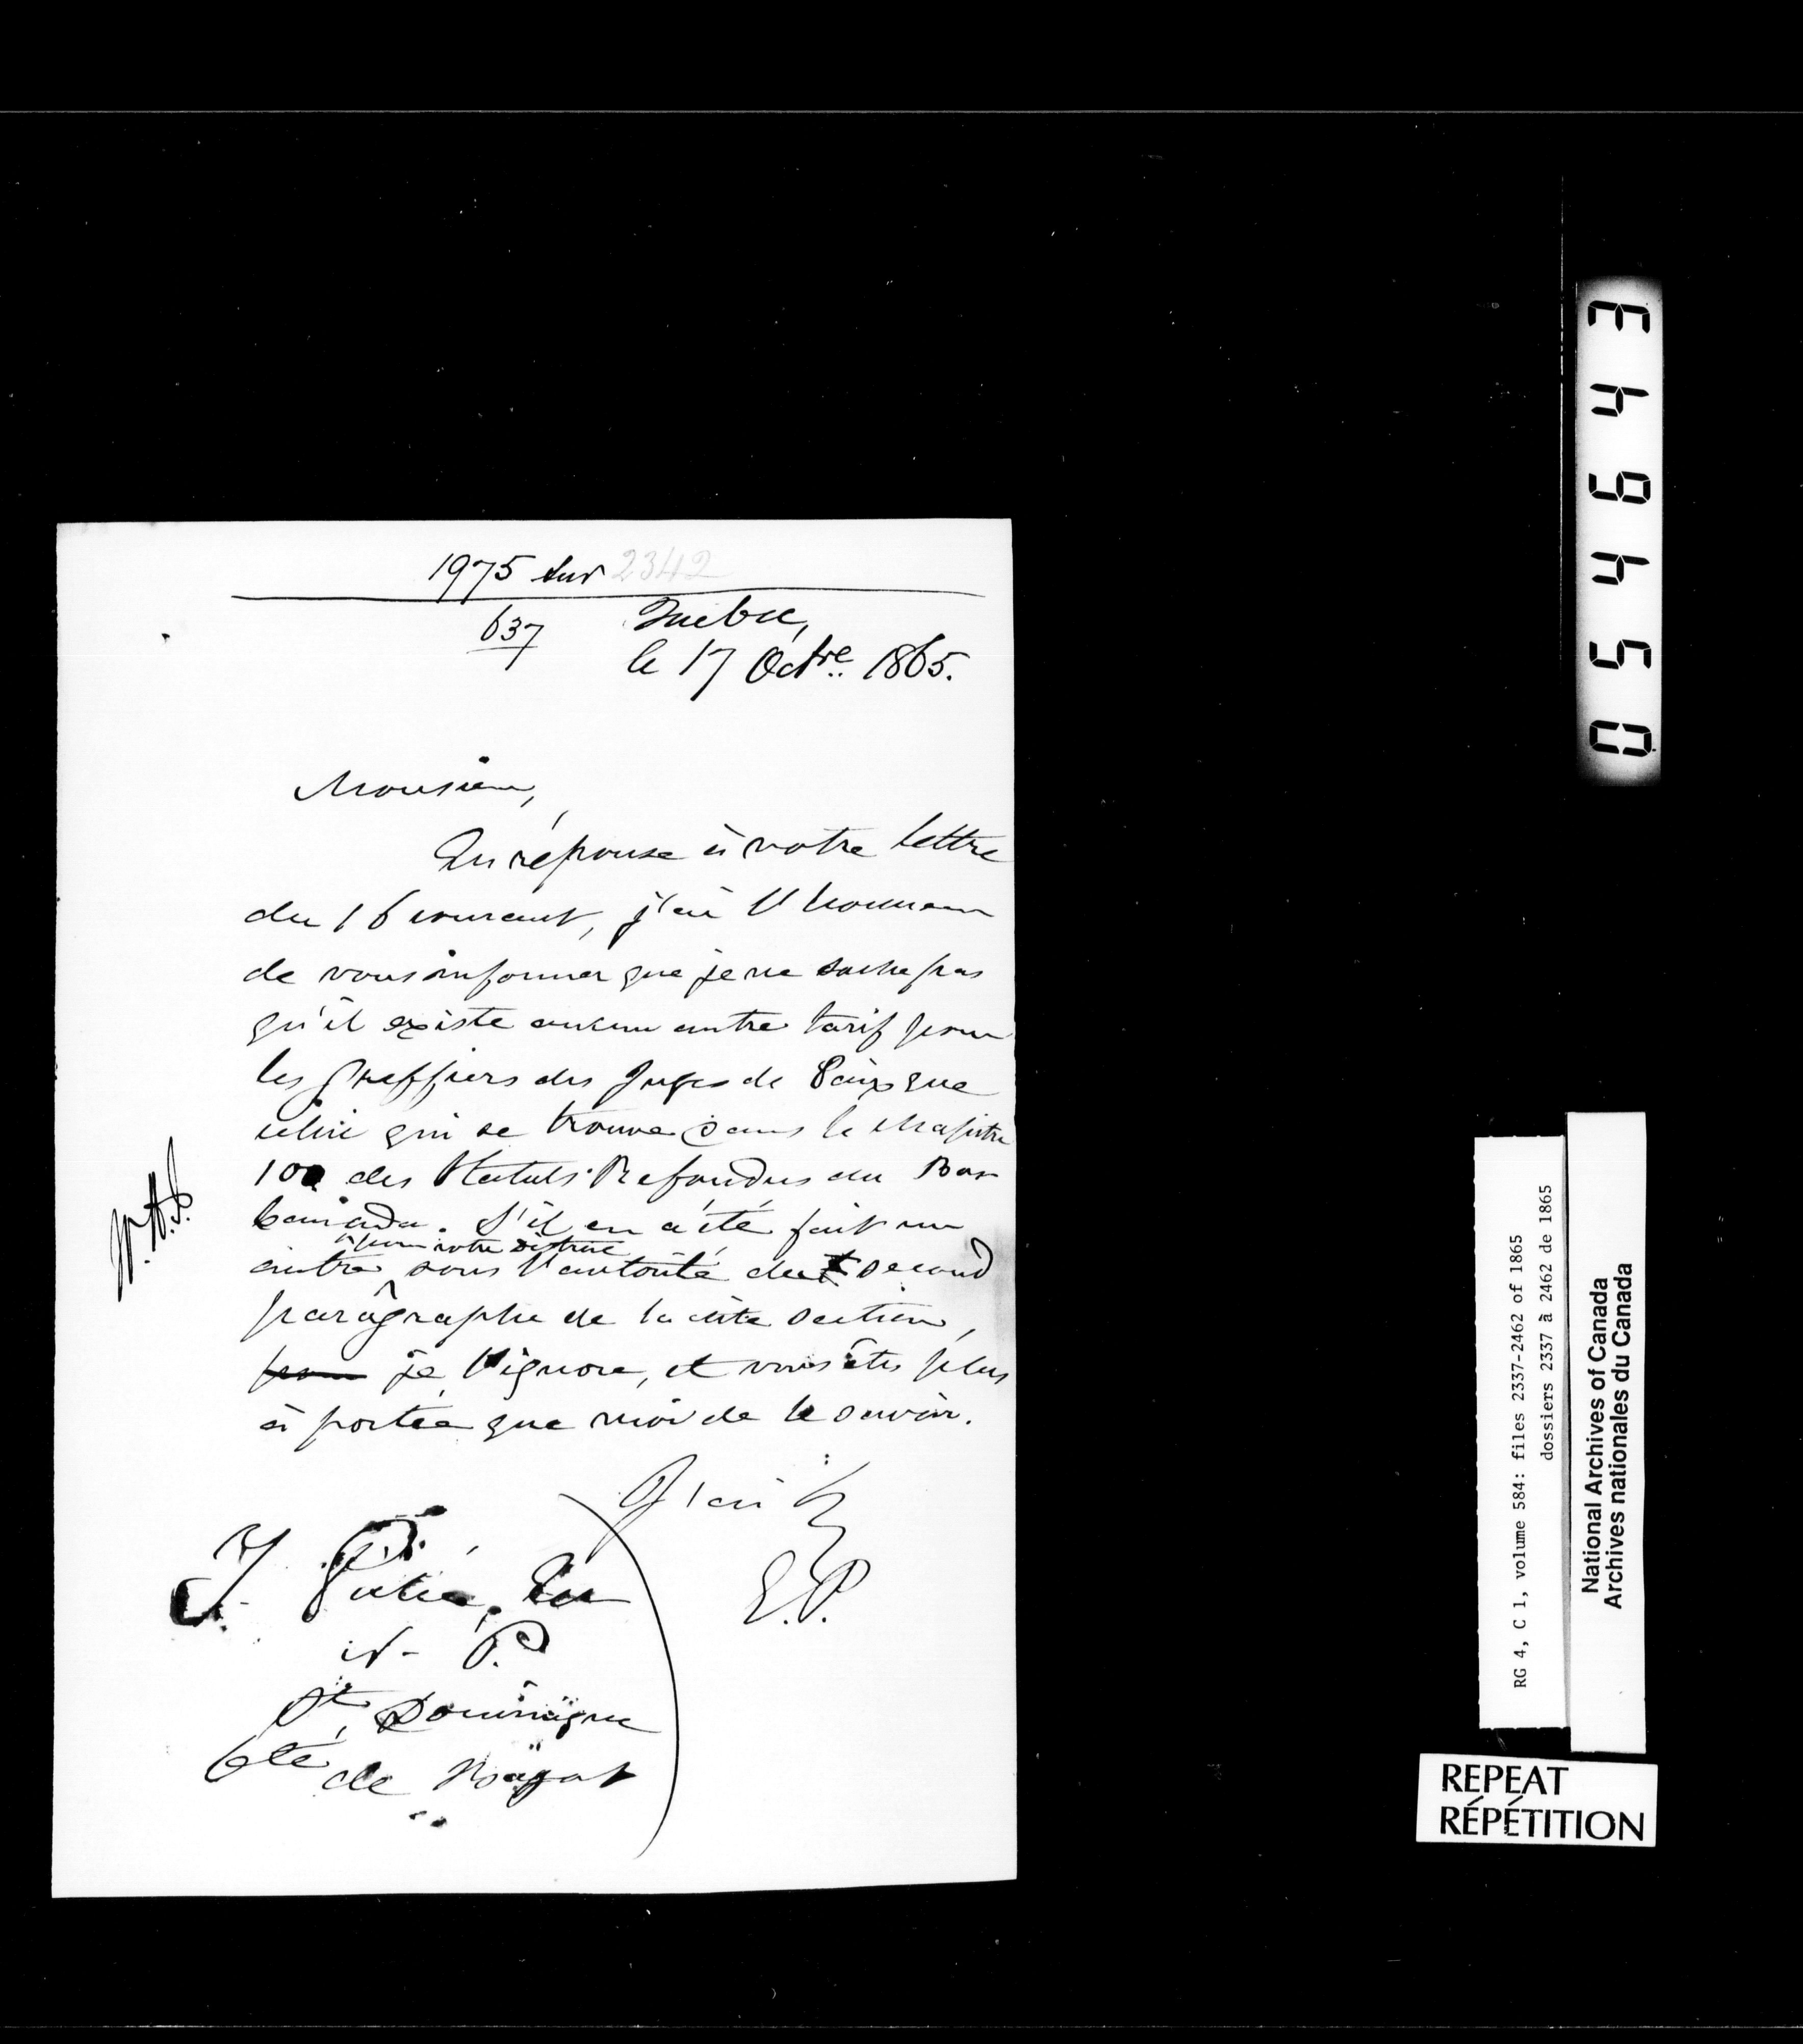 1975 sur 2342
637
Québec,
le 17 Octre. 1865.
Monsieur,
En réponse à votre lettre
du 16 courant, j'ai l'honneur
de vous informer que je ne sache pas
qu'il existe aucun autre tarif pour
les Greffiers des Juges de Paix que
celui qui se trouve dans le chapitre
100 des Statuts Refondus du Bas
Canada. S'il en a été fait un
pour votre district
autre sous l'autorité du second
parâgraphe de la dite section,
pour je l'ignore, et vous êtes plus
à portée que moi de le savoir.
J'ai &
E.P.
W.A.H.
J. Ecr
N. P.
St. Dominique
Cté de Bagot
0546443
RG 4, C 1, volume 584: files 2337-2462 of 1865
dossiers 2337 à 2462 de 1865
National Archives of Canada
Archives nationales du Canada
REPEAT
RÉPÉTITION